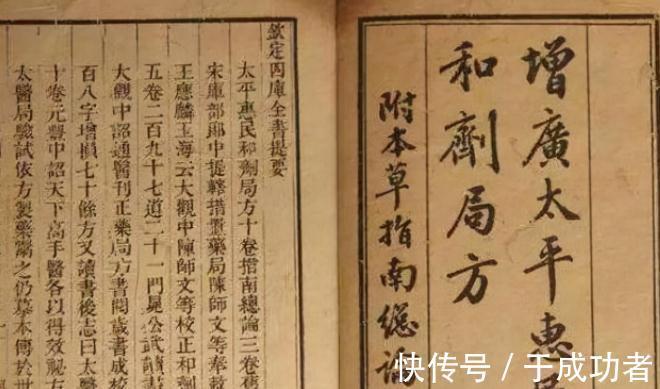 增廣太平惠
和劑局方
附本草指南總論
欽定四庫全書提要
太平惠民和劑局方十卷指南總論三卷舊
宋庫部郎中提轄措置藥局陳師文等奉
王應麟玉海云大觀中陳師文等校正和劑
五卷二百九十七道二十一門晁公武讀書
大觀中詔通醫刊正藥局方書閱歲書成校
百八字增損七十餘方又讀書後志曰太醫
十卷元豐中詔天下高手醫各以得效秘方
太醫局驗試依方製藥鬻之仍摹本傳於世
快传号 / 于成功者